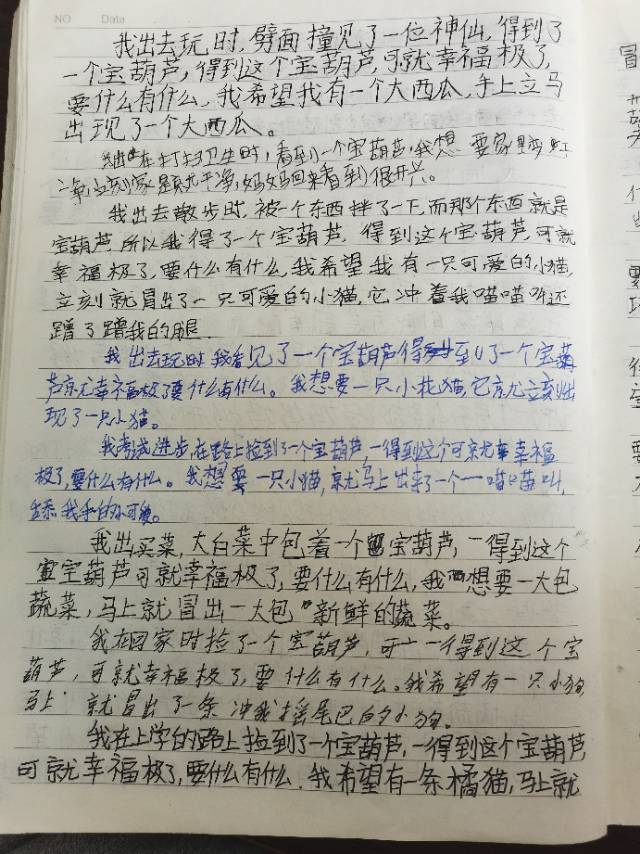 NO Date
我出去玩时,劈面撞见了一位神仙,得到了
一个宝葫芦,得到这个宝葫芦,可就幸福极了,
要什么有什么,我希望我有一个大西瓜,手上立马
出现了一个大西瓜。
在打扫卫生时,看到一个宝葫芦,我想要家里变干
净,立刻家里就干净,妈妈回来看到很开兴。
我出去散步时,被一个东西拌了一下,而那个东西就是
宝葫芦,所以我得了一个宝葫芦,得到这个宝葫芦,可就
幸福极了,要什么有什么,我希望我有一只可爱的小猫,
立刻就冒出了一只可爱的小猫,它冲着我喵喵叫还
蹭了蹭我的腿.
我出去玩时我看见了一个宝葫芦得到了一个宝葫
芦就幸福极了要什么有什么。我想要一只小猫,它就立刻出
现了一只小猫。
我考试进步,在路上捡到了一个宝葫芦,一得到这个可就幸福
极了,要什么有什么。我想要一只小猫,就马上出来了一个一喵喵叫,
舔我手的小可爱。
我出买菜,大白菜中包着一个宝葫芦,一得到这个
宝葫芦可就幸福极了,要什么有什么,我想要一大包
蔬菜,马上就冒出一大包新鲜的蔬菜。
我在回家时捡了一个宝葫芦,可一得到这个宝
葫芦,可就幸福极了,要什么有什么。我希望有一只小狗,
马上就冒出了一条冲我摇尾巴的小狗。
我在上学的路上捡到了一个宝葫芦,一得到这个宝葫芦,
可就幸福极了,要什么有什么.我希望有一条橘猫,马上就